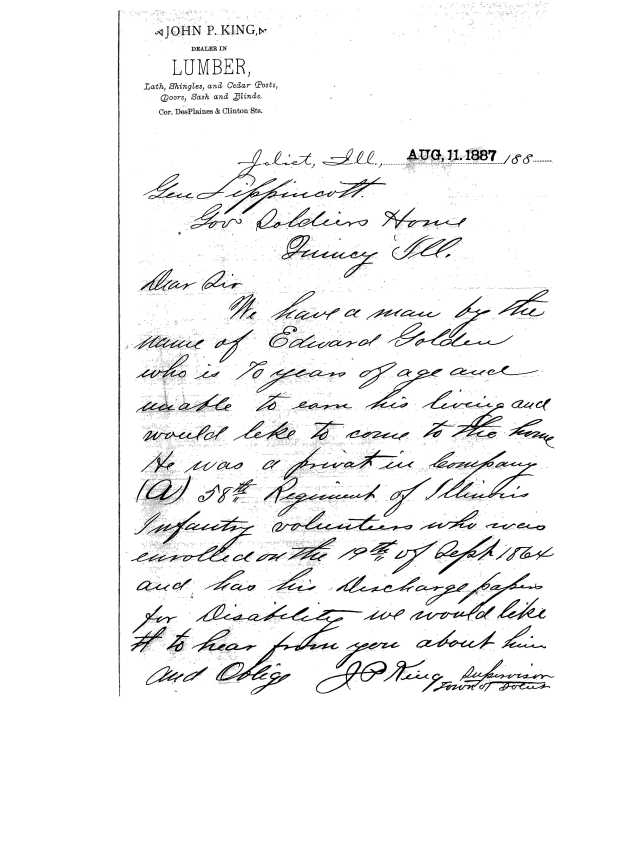 JOHN P. KING,
DEALER IN
LUMBER,
Lath, Shingles, and Cedar Posts,
Doors, Sash and Blinds.
Cor. DesPlaines & Clinton Sts.
Joliet, Ill., AUG, 11. 1887 188
Gen Lippincott.
Gov Soldiers Home
Quincy Ill.
Dear Sir
We have a man by the
name of Edward Golden
who is 70 years of age and
unable to earn his living and
would like to come to the home
He was a privat in Company
(A) 58th Regiment of Illinois
Infantry volunteers who was
enrolled on the 19th of Sept 1864
and has his Discharge papers
for Disability we would like
to hear from you about him
and Oblige J P King Supervisor
Town of Joliet